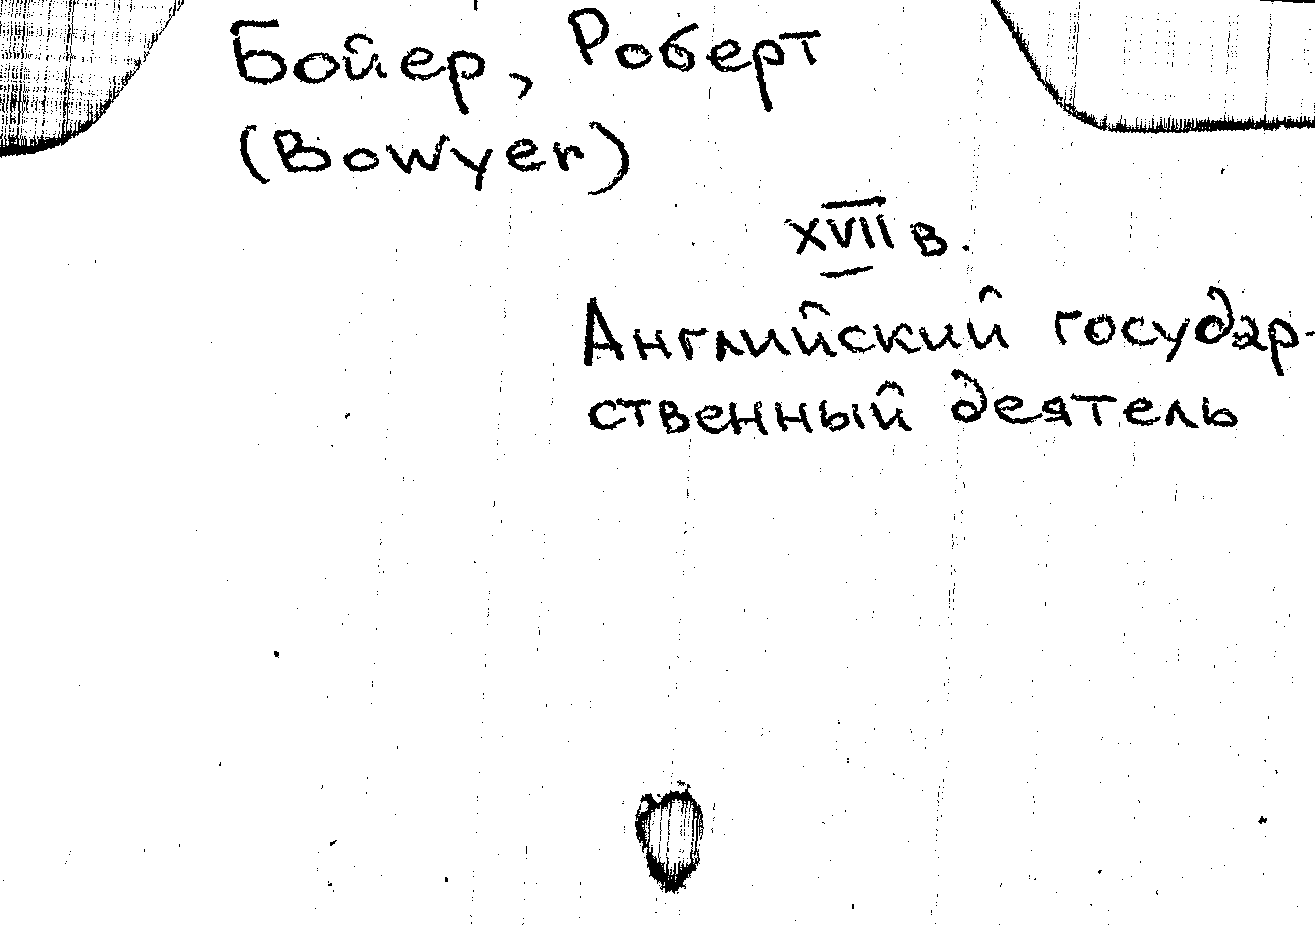 Бойер, Роберт
(Bowyer)
XVII в.
Английский государ-
ственный деятель